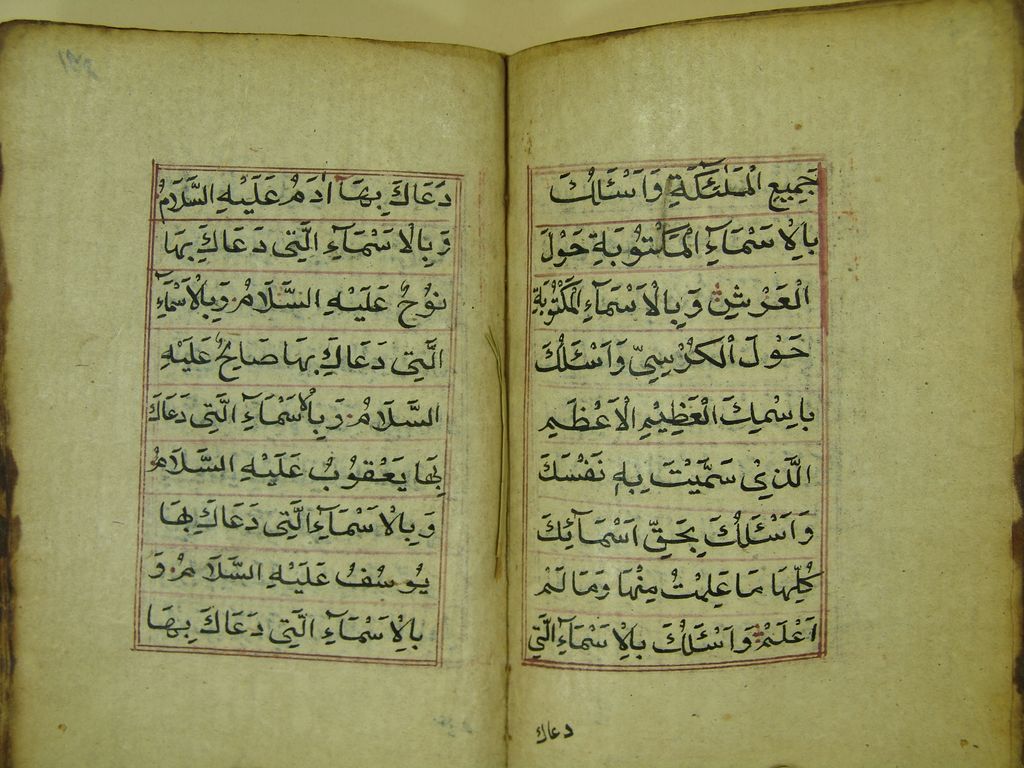 جَمِيعِ الْمَلٰئِكَةِ وَاَسْئَلُكَ
بِالْاَسْمَآءِ الْمَكْتُوْبَةِ حَوْلَ
الْعَرْشِ وَبِالْاَسْمَآءِ الْمَكْتُوْبَةِ
حَوْلَ الْكُرْسِيِّ وَاَسْئَلُكَ
بِاسْمِكَ الْعَظِيْمِ الْاَعْظَمِ
الَّذِيْ سَمَّيْتَ بِهٖ نَفْسَكَ
وَاَسْئَلُكَ بِحَقِّ اَسْمَآئِكَ
كُلِّهَا مَا عَلِمْتُ مِنْهَا وَمَا لَمْ
اَعْلَمْ وَاَسْئَلُكَ بِالْاَسْمَآءِ الَّتِيْ
دعاك
دَعَاكَ بِهَا اٰدَمُ عَلَيْهِ السَّلَامُ
وَبِالْاَسْمَآءِ الَّتِيْ دَعَاكَ بِهَا
نُوْحٌ عَلَيْهِ السَّلَامُ وَبِالْاَسْمَآءِ
الَّتِيْ دَعَاكَ بِهَا صَالِحٌ عَلَيْهِ
السَّلَامُ وَبِالْاَسْمَآءِ الَّتِيْ دَعَاكَ
بِهَا يَعْقُوْبُ عَلَيْهِ السَّلَامُ
وَبِالْاَسْمَآءِ الَّتِيْ دَعَاكَ بِهَا
يُوسُفُ عَلَيْهِ السَّلَامُ وَ
بِالْاَسْمَآءِ الَّتِيْ دَعَاكَ بِهَا